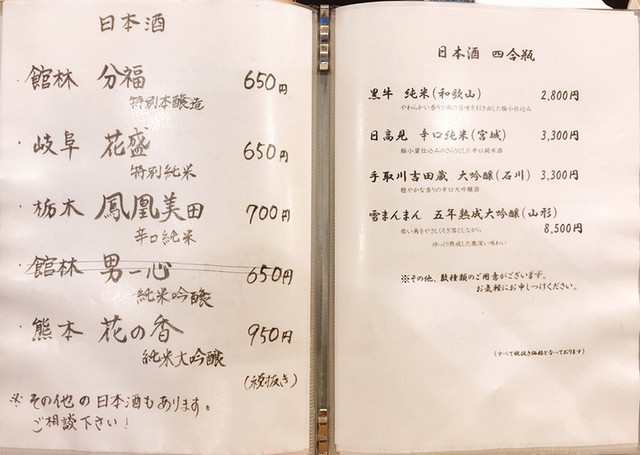 日本酒
・館林 分福 650円
特別本醸造
・岐阜 花盛 650円
特別純米
・栃木 鳳凰美田 700円
辛口純米
・館林 男一心 650円
純米吟醸
・熊本 花の香 950円
純米大吟醸
(税抜き)
※ その他の日本酒もあります。
ご相談下さい!
日本酒 四合瓶
黒牛 純米(和歌山) 2,800円
やわらかい香りで米の旨味を引き出した極小仕込み
日高見 辛口純米(宮城) 3,300円
極小量仕込みのさらりとした辛口純米酒
手取川吉田蔵 大吟醸(石川) 3,300円
軽やかな香りの辛口大吟醸酒
雪まんまん 五年熟成大吟醸(山形)
低い角をやさしくそぎ落としながら 8,500円
ゆっくり熟成した奥深い味わい
※その他、数種類のご用意がございます。
お気軽にお申しつけください。
(すべて税抜き価格となっております)